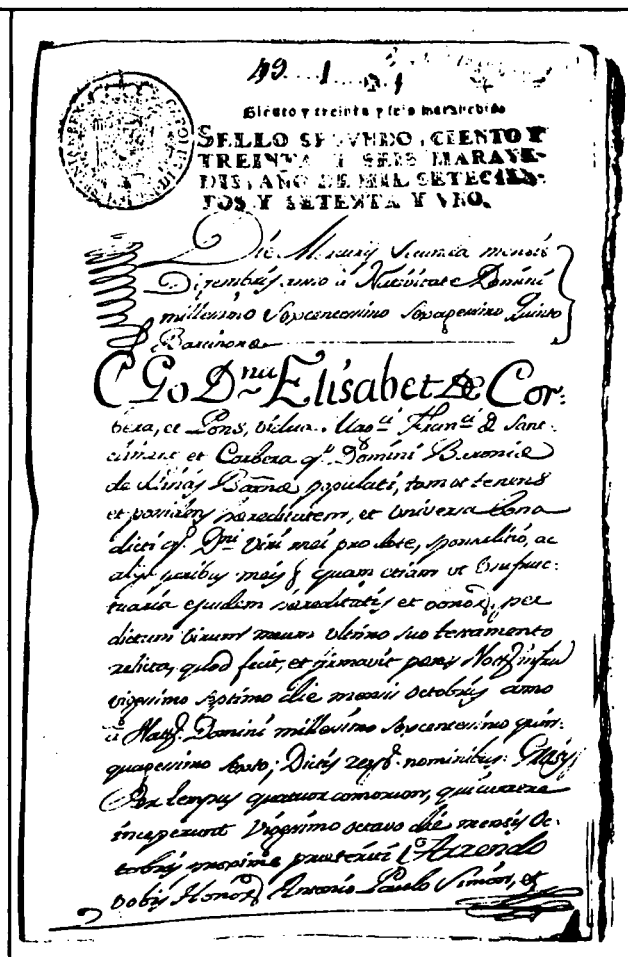 49....1
Ciento y treinta y seis maravedis
SELLO SEGVNDO, CIENTO Y
TREINTA Y SEIS MARAVE-
DIS, AÑO DE MIL SETECIEN-
TOS Y SETENTA Y VNO.
Die Mercurij secunda mensis
Decembris anno à Nativitate Domini
millessimo sexcentessimo sexagessimo Quinto
Barcinonæ
EGo D.na Elisabet de Cor-
bera, et Pons, vidua
et Corbera q.º Domini Baroniæ
de Linás populati, tam ut tenens
et hæreditatem, et universa bona
dicti q.º Dni viri mei pro dote, sponsalitio, ac
alijs juribus meis quam etiam ut usufruc-
tuaria ejusdem hæreditatis et per
dictum virum meum ultimo suo testamento
relicta, quod fecit, et firmavit infra
vigessimo septimo die mensis octobris anno
à Domini millessimo sexcentessimo quin-
quagessimo sexto; Dictis nominibus: Gratis
Per tempus quatuor annorum, qui currere
inceperunt vigessimo octavo die mensis oc-
tobris proxime præteriti Arrendo
vobis Antonio Paulo Simón, et